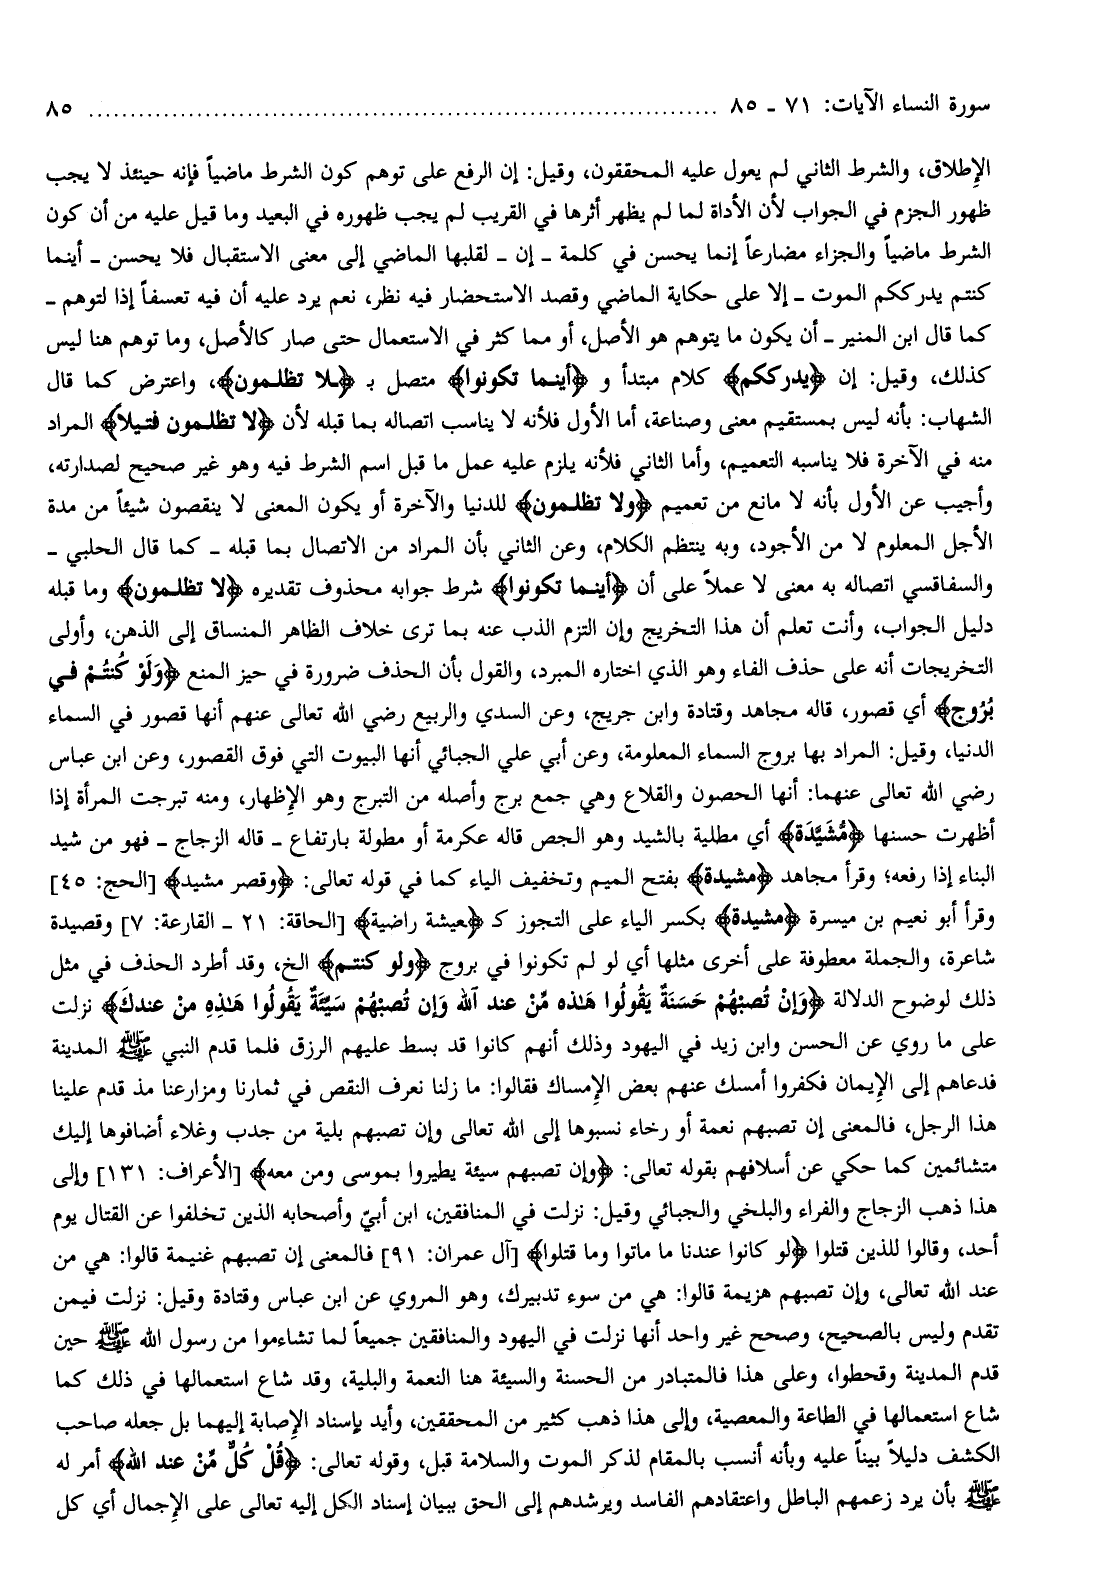 سورة النساء الآيات: ٧١ ـ ٨٥ ........................................................................ ٨٥
الإِطلاق، والشرط الثاني لم يعول عليه المحققون، وقيل: إن الرفع على توهم كون الشرط ماضياً فإنه حينئذ لا يجب
ظهور الجزم في الجواب لأن الأداة لما لم يظهر أثرها في القريب لم يجب ظهوره في البعيد وما قيل عليه من أن كون
الشرط ماضياً والجزاء مضارعاً إنما يحسن في كلمة ـ إن ـ لقلبها الماضي إلى معنى الاستقبال فلا يحسن ـ أينما
كنتم يدرككم الموت ـ إلا على حكاية الماضي وقصد الاستحضار فيه نظر، نعم يرد عليه أن فيه تعسفاً إذا لتوهم ـ
كما قال ابن المنير ـ أن يكون ما يتوهم هو الأصل، أو مما كثر في الاستعمال حتى صار كالأصل، وما توهم هنا ليس
كذلك، وقيل: إن ﴿يدرككم﴾ كلام مبتدأ و ﴿أينما تكونوا﴾ متصل بـ ﴿لا تظلمون﴾، واعترض كما قال
الشهاب: بأنه ليس بمستقيم معنى وصناعة، أما الأول فلأنه لا يناسب اتصاله بما قبله لأن ﴿لا تظلمون فتيلاً﴾ المراد
منه في الآخرة فلا يناسبه التعميم، وأما الثاني فلأنه يلزم عليه عمل ما قبل اسم الشرط فيه وهو غير صحيح لصدارته،
وأجيب عن الأول بأنه لا مانع من تعميم ﴿ولا تظلمون﴾ للدنيا والآخرة أو يكون المعنى لا ينقصون شيئاً من مدة
الأجل المعلوم لا من الأجود، وبه ينتظم الكلام، وعن الثاني بأن المراد من الاتصال بما قبله ـ كما قال الحلبي ـ
والسفاقسي اتصاله به معنى لا عملاً على أن ﴿أينما تكونوا﴾ شرط جوابه محذوف تقديره ﴿لا تظلمون﴾ وما قبله
دليل الجواب، وأنت تعلم أن هذا التخريج وإن التزم الذب عنه بما ترى خلاف الظاهر المنساق إلى الذهن، وأولى
التخريجات أنه على حذف الفاء وهو الذي اختاره المبرد، والقول بأن الحذف ضرورة في حيز المنع ﴿وَلَوْ كُنتُمْ في
بُرُوج﴾ أي قصور، قاله مجاهد وقتادة وابن جريج، وعن السدي والربيع رضي الله تعالى عنهم أنها قصور في السماء
الدنيا، وقيل: المراد بها بروج السماء المعلومة، وعن أبي علي الجبائي أنها البيوت التي فوق القصور، وعن ابن عباس
رضي الله تعالى عنهما: أنها الحصون والقلاع وهي جمع برج وأصله من التبرج وهو الإِظهار، ومنه تبرجت المرأة إذا
أظهرت حسنها ﴿مُّشَيَّدَة﴾ أي مطلية بالشيد وهو الجص قاله عكرمة أو مطولة بارتفاع ـ قاله الزجاج ـ فهو من شيد
البناء إذا رفعه؛ وقرأ مجاهد ﴿مشيدة﴾ بفتح الميم وتخفيف الياء كما في قوله تعالى: ﴿وقصر مشيد﴾ [الحج: ٤٥]
وقرأ أبو نعيم بن ميسرة ﴿مشيدة﴾ بكسر الياء على التجوز كـ ﴿عيشة راضية﴾ [الحاقة: ٢١ ـ القارعة: ٧] وقصيدة
شاعرة، والجملة معطوفة على أخرى مثلها أي لو لم تكونوا في بروج ﴿ولو كنتم﴾ الخ، وقد أطرد الحذف في مثل
ذلك لوضوح الدلالة ﴿وَإِنْ تُصبْهُمْ حَسَنَةٌ يَقُولُوا هَٰذه مِّنْ عند ٱلله وَإِن تُصبْهُمْ سَيِّئَةٌ يَقُولُوا هَٰذِهِ منْ عندكَ﴾ نزلت
على ما روي عن الحسن وابن زيد في اليهود وذلك أنهم كانوا قد بسط عليهم الرزق فلما قدم النبي ﷺ المدينة
فدعاهم إلى الإِيمان فكفروا أمسك عنهم بعض الإِمساك فقالوا: ما زلنا نعرف النقص في ثمارنا ومزارعنا مذ قدم علينا
هذا الرجل، فالمعنى إن تصبهم نعمة أو رخاء نسبوها إلى الله تعالى وإن تصبهم بلية من جدب وغلاء أضافوها إليك
متشائمين كما حكي عن أسلافهم بقوله تعالى: ﴿وإن تصبهم سيئة يطيروا بموسى ومن معه﴾ [الأعراف: ١٣١] وإلى
هذا ذهب الزجاج والفراء والبلخي والجبائي وقيل: نزلت في المنافقين، ابن أبيّ وأصحابه الذين تخلفوا عن القتال يوم
أحد، وقالوا للذين قتلوا ﴿لو كانوا عندنا ما ماتوا وما قتلوا﴾ [آل عمران: ٩١] فالمعنى إن تصبهم غنيمة قالوا: هي من
عند الله تعالى، وإن تصبهم هزيمة قالوا: هي من سوء تدبيرك، وهو المروي عن ابن عباس وقتادة وقيل: نزلت فيمن
تقدم وليس بالصحيح، وصحح غير واحد أنها نزلت في اليهود والمنافقين جميعاً لما تشاءموا من رسول الله ﷺ حين
قدم المدينة وقحطوا، وعلى هذا فالمتبادر من الحسنة والسيئة هنا النعمة والبلية، وقد شاع استعمالها في ذلك كما
شاع استعمالها في الطاعة والمعصية، وإلى هذا ذهب كثير من المحققين، وأيد بإسناد الإِصابة إليهما بل جعله صاحب
الكشف دليلاً بيناً عليه وبأنه أنسب بالمقام لذكر الموت والسلامة قبل، وقوله تعالى: ﴿قُلْ كُلٌّ مِّنْ عند الله﴾ أمر له
ﷺ بأن يرد زعمهم الباطل واعتقادهم الفاسد ويرشدهم إلى الحق ببيان إسناد الكل إليه تعالى على الإِجمال أي كل